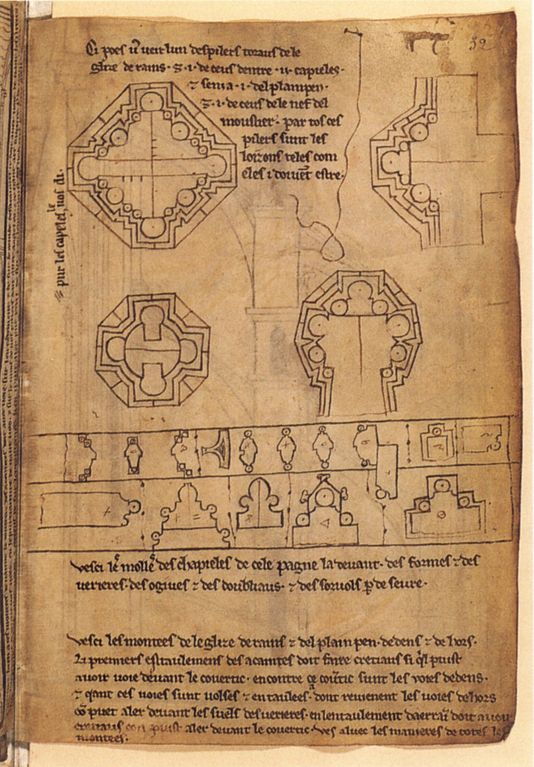 Ci poes vir lun des pilers toraus de le
glize de rains · ⁊ · i · de ceus dentre · ii · capieles ·
⁊ sen i a · i · del plain pen ·
⁊ · i · de ceus de le nef del
moustier · par tos ces
pilers sunt les
loizons teles com
eles i doivēt estre ·
32
Vesci les molles des chapieles de cele pagne la devant · des formes ⁊ des
verieres · des ogives ⁊ des doubliaus · ⁊ des sorvols p̄ deseure ·
Vesci les montees de le glize de rains ⁊ del plain pen · dedens ⁊ de hors ·
Li premiers estaulemens des acaintes doit faire cretiaus si q̄l puist
avoir voie devant le covertic · encontre ce covertic sunt les voies dedens ·
⁊ qant ces voies sunt volses ⁊ entaulees · adont revienent les voies dehors
cō puet aler devant les suels des verieres · en lentaulement daerrain doit avoir
cretiaus con puist aler devant le covertic · ves aluec les manieres de totes les
montees ·